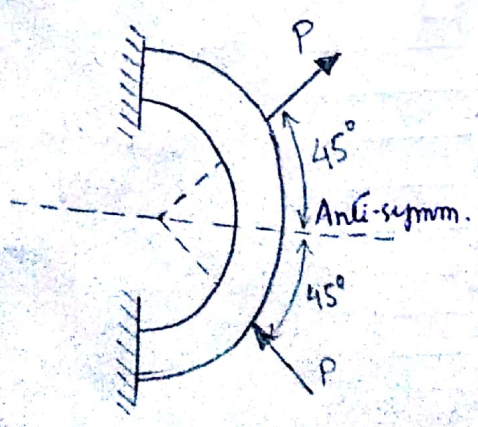 P
45°
Anti-symm.
45°
P